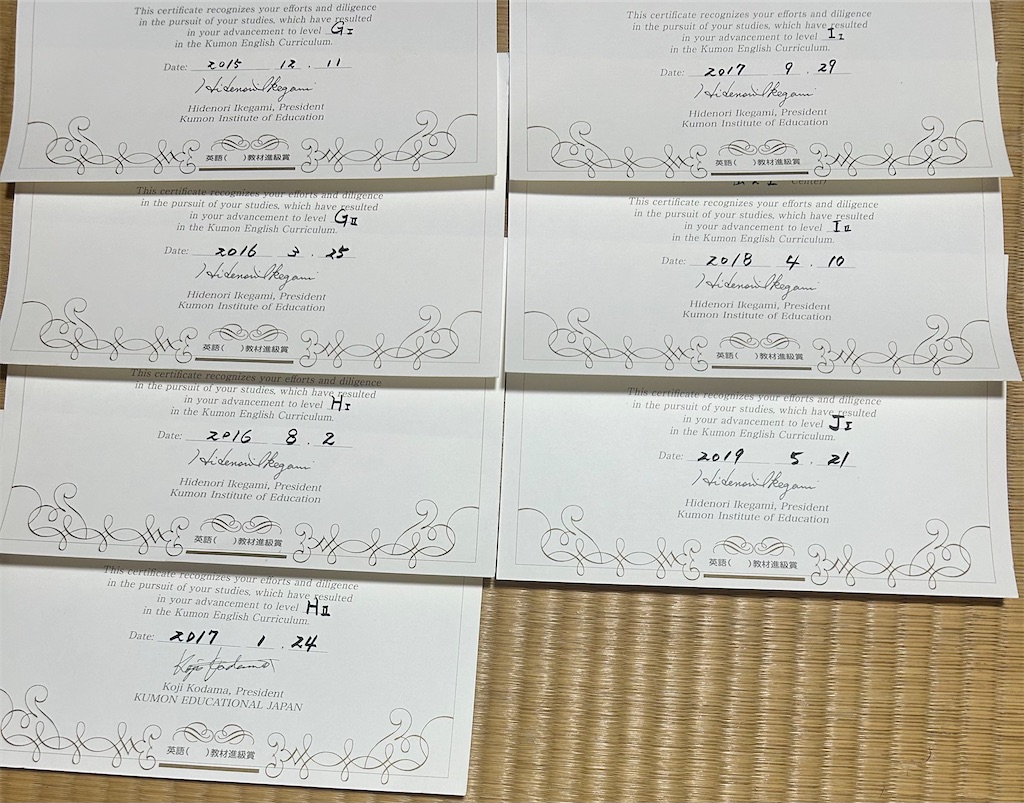 This certificate recognizes your efforts and diligence
in the pursuit of your studies, which have resulted
in your advancement to level GI
in the Kumon English Curriculum.
Date: 2015 12 . 11
Hidenori Ikegami
Hidenori Ikegami, President
Kumon Institute of Education
英語( )教材進級賞
This certificate recognizes your efforts and diligence
in the pursuit of your studies, which have resulted
in your advancement to level GII
in the Kumon English Curriculum.
Date: 2016 3 . 25
Hidenori Ikegami
Hidenori Ikegami, President
Kumon Institute of Education
英語( )教材進級賞
This certificate recognizes your efforts and diligence
in the pursuit of your studies, which have resulted
in your advancement to level HI
in the Kumon English Curriculum.
Date: 2016 8 . 2
Hidenori Ikegami
Hidenori Ikegami, President
Kumon Institute of Education
英語( )教材進級賞
This certificate recognizes your efforts and diligence
in the pursuit of your studies, which have resulted
in your advancement to level HII
in the Kumon English Curriculum.
Date: 2017 1 . 24
Koji Kodama
Koji Kodama, President
KUMON EDUCATIONAL JAPAN
英語( )教材進級賞
This certificate recognizes your efforts and diligence
in the pursuit of your studies, which have resulted
in your advancement to level II
in the Kumon English Curriculum.
Date: 2017 9 . 29
Hidenori Ikegami
Hidenori Ikegami, President
Kumon Institute of Education
英語( )教材進級賞
Center)
This certificate recognizes your efforts and diligence
in the pursuit of your studies, which have resulted
in your advancement to level III
in the Kumon English Curriculum.
Date: 2018 4 . 10
Hidenori Ikegami
Hidenori Ikegami, President
Kumon Institute of Education
英語( )教材進級賞
This certificate recognizes your efforts and diligence
in the pursuit of your studies, which have resulted
in your advancement to level JI
in the Kumon English Curriculum.
Date: 2019 5 . 21
Hidenori Ikegami
Hidenori Ikegami, President
Kumon Institute of Education
英語( )教材進級賞